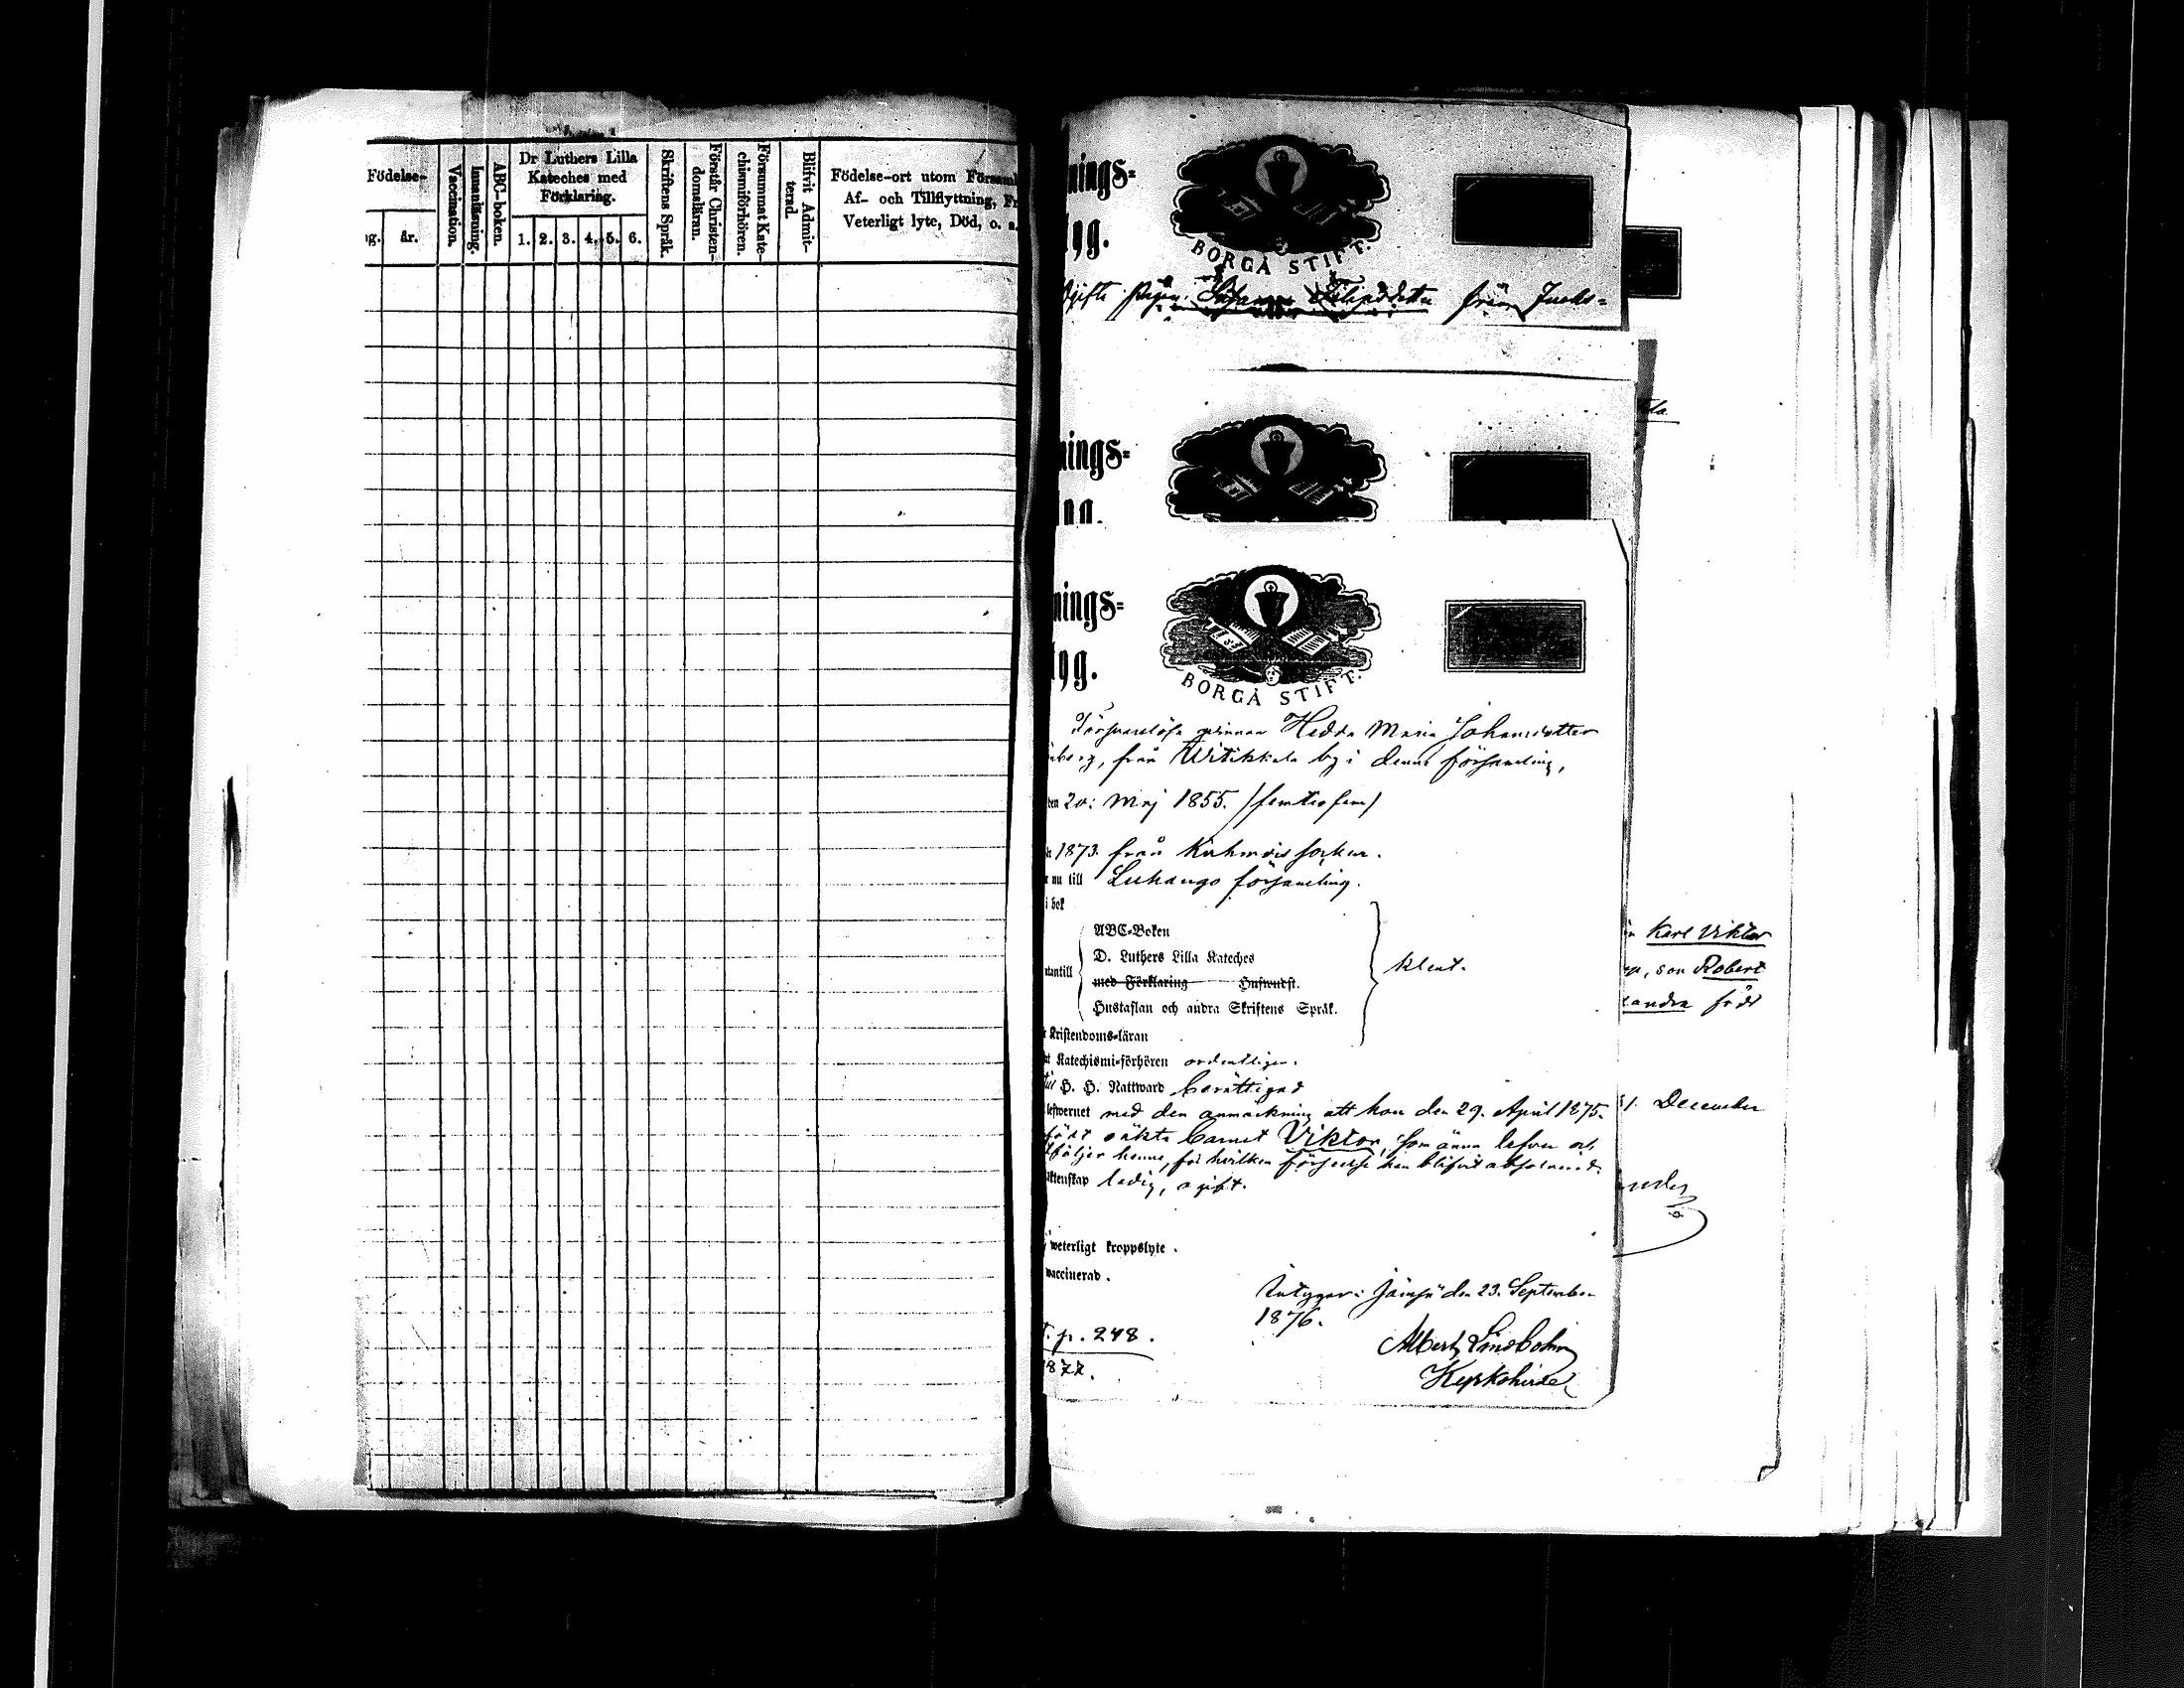 Födelse-
år.
Vaccination.
Innanläsning.
ABC-boken.
Dr Luthers Lilla
Kateches med
Förklaring.
1. 2. 3. 4. 5. 6.
Skriftens Språk.
Förstår Christen-
domsläran.
Försummat Kate-
chismiförhören.
Blifvit Admit-
terad.
Födelse-ort utom Församl
Af- och Tillflyttning, Fr
Veterligt lyte, Död, o. s.
nings-
yg.
BORGÅ STIFT.
från
nings-
nings-
yg.
BORGÅ STIFT.
Försvarslösa qvinnan Hedda Maria Johansdotter
från Witikkala by i denna församling,
den 20: Maj 1855. /femtiofem/
1873. från Kuhmois socken.
nu till Luhango församling.
i bok
ABC-Boken
D. Luthers Lilla Kateches
med Förklaring Husandst.
Hustaflan och andra Skriftens Språk.
utantill
klent.
Kristendoms-läran
Katechismi-förhören ordentligen.
H. H. Nattward berättigad
lefwernet med den anmärkning att hon den 29. April 1875.
födt oäkta barnet Viktor, som ännu lefver och
åtföljer henne, för hvilken förseelse hon blifvit absolverad.
ktenskap ledig, ogift.
weterligt kroppslyte.
vaccinerad.
Intygar: Jämsä den 23. September
1876.
p. 248.
1877.
Albert Lindbohm
Kyrkoherde
Karl Viktor
son Robert
andra född
December